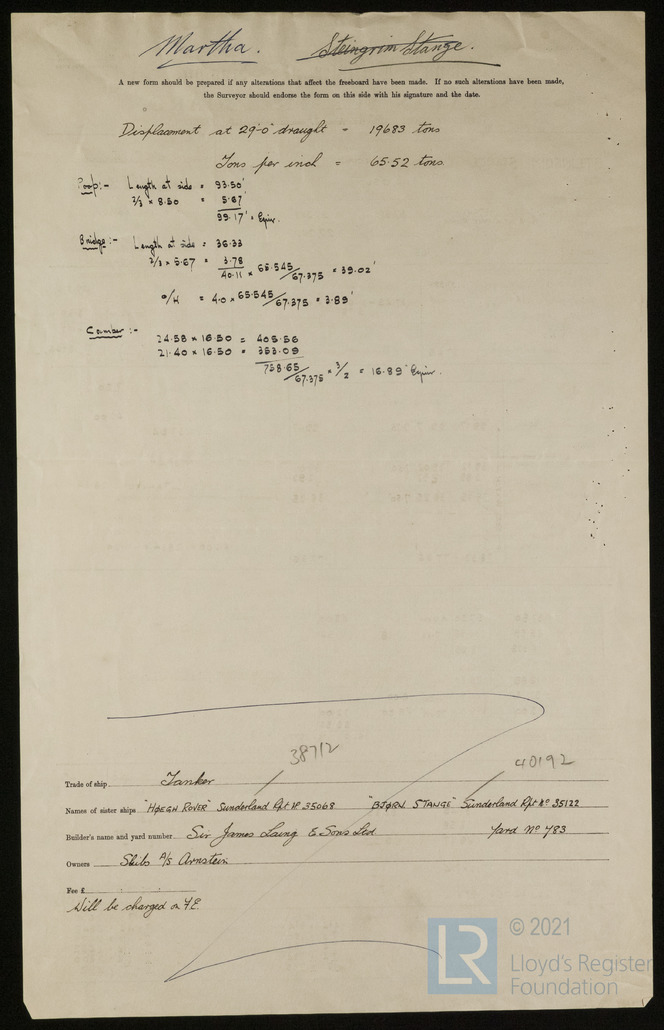 Martha. Steingrim Stange.
A new form should be prepared if any alterations that affect the freeboard have been made. If no such alterations have been made,
the Surveyor should endorse the form on this side with his signature and the date.
Displacement at 29'-0" draught = 19683 tons
Tons per inch = 65.52 tons
Poop:- Length at side = 93.50'
2/3 × 8.50 = 5.67
99.17' = Equiv.
Bridge:- Length at side = 36.33
2/3 × 5.67 = 3.78
40.11 × 65.545/67.375 = 39.02'
O/H = 4.0 × 65.545/67.375 = 3.89'
Camber:-
24.58 × 16.50 = 405.56
21.40 × 16.50 = 353.09
758.65/67.375 × 3/2 = 16.89" Equiv.
38712
40192
Trade of ship Tanker
Names of sister ships "HØEGH ROVER" Sunderland Rpt Nº 35068 "BJØRN STANGE" Sunderland Rpt Nº 35122
Builder's name and yard number Sir James Laing & Sons Ltd Yard Nº 783
Owners Skibs A/S Arnstein
Fee £
Will be charged on F.E.
LR
© 2021
Lloyd's Register
Foundation